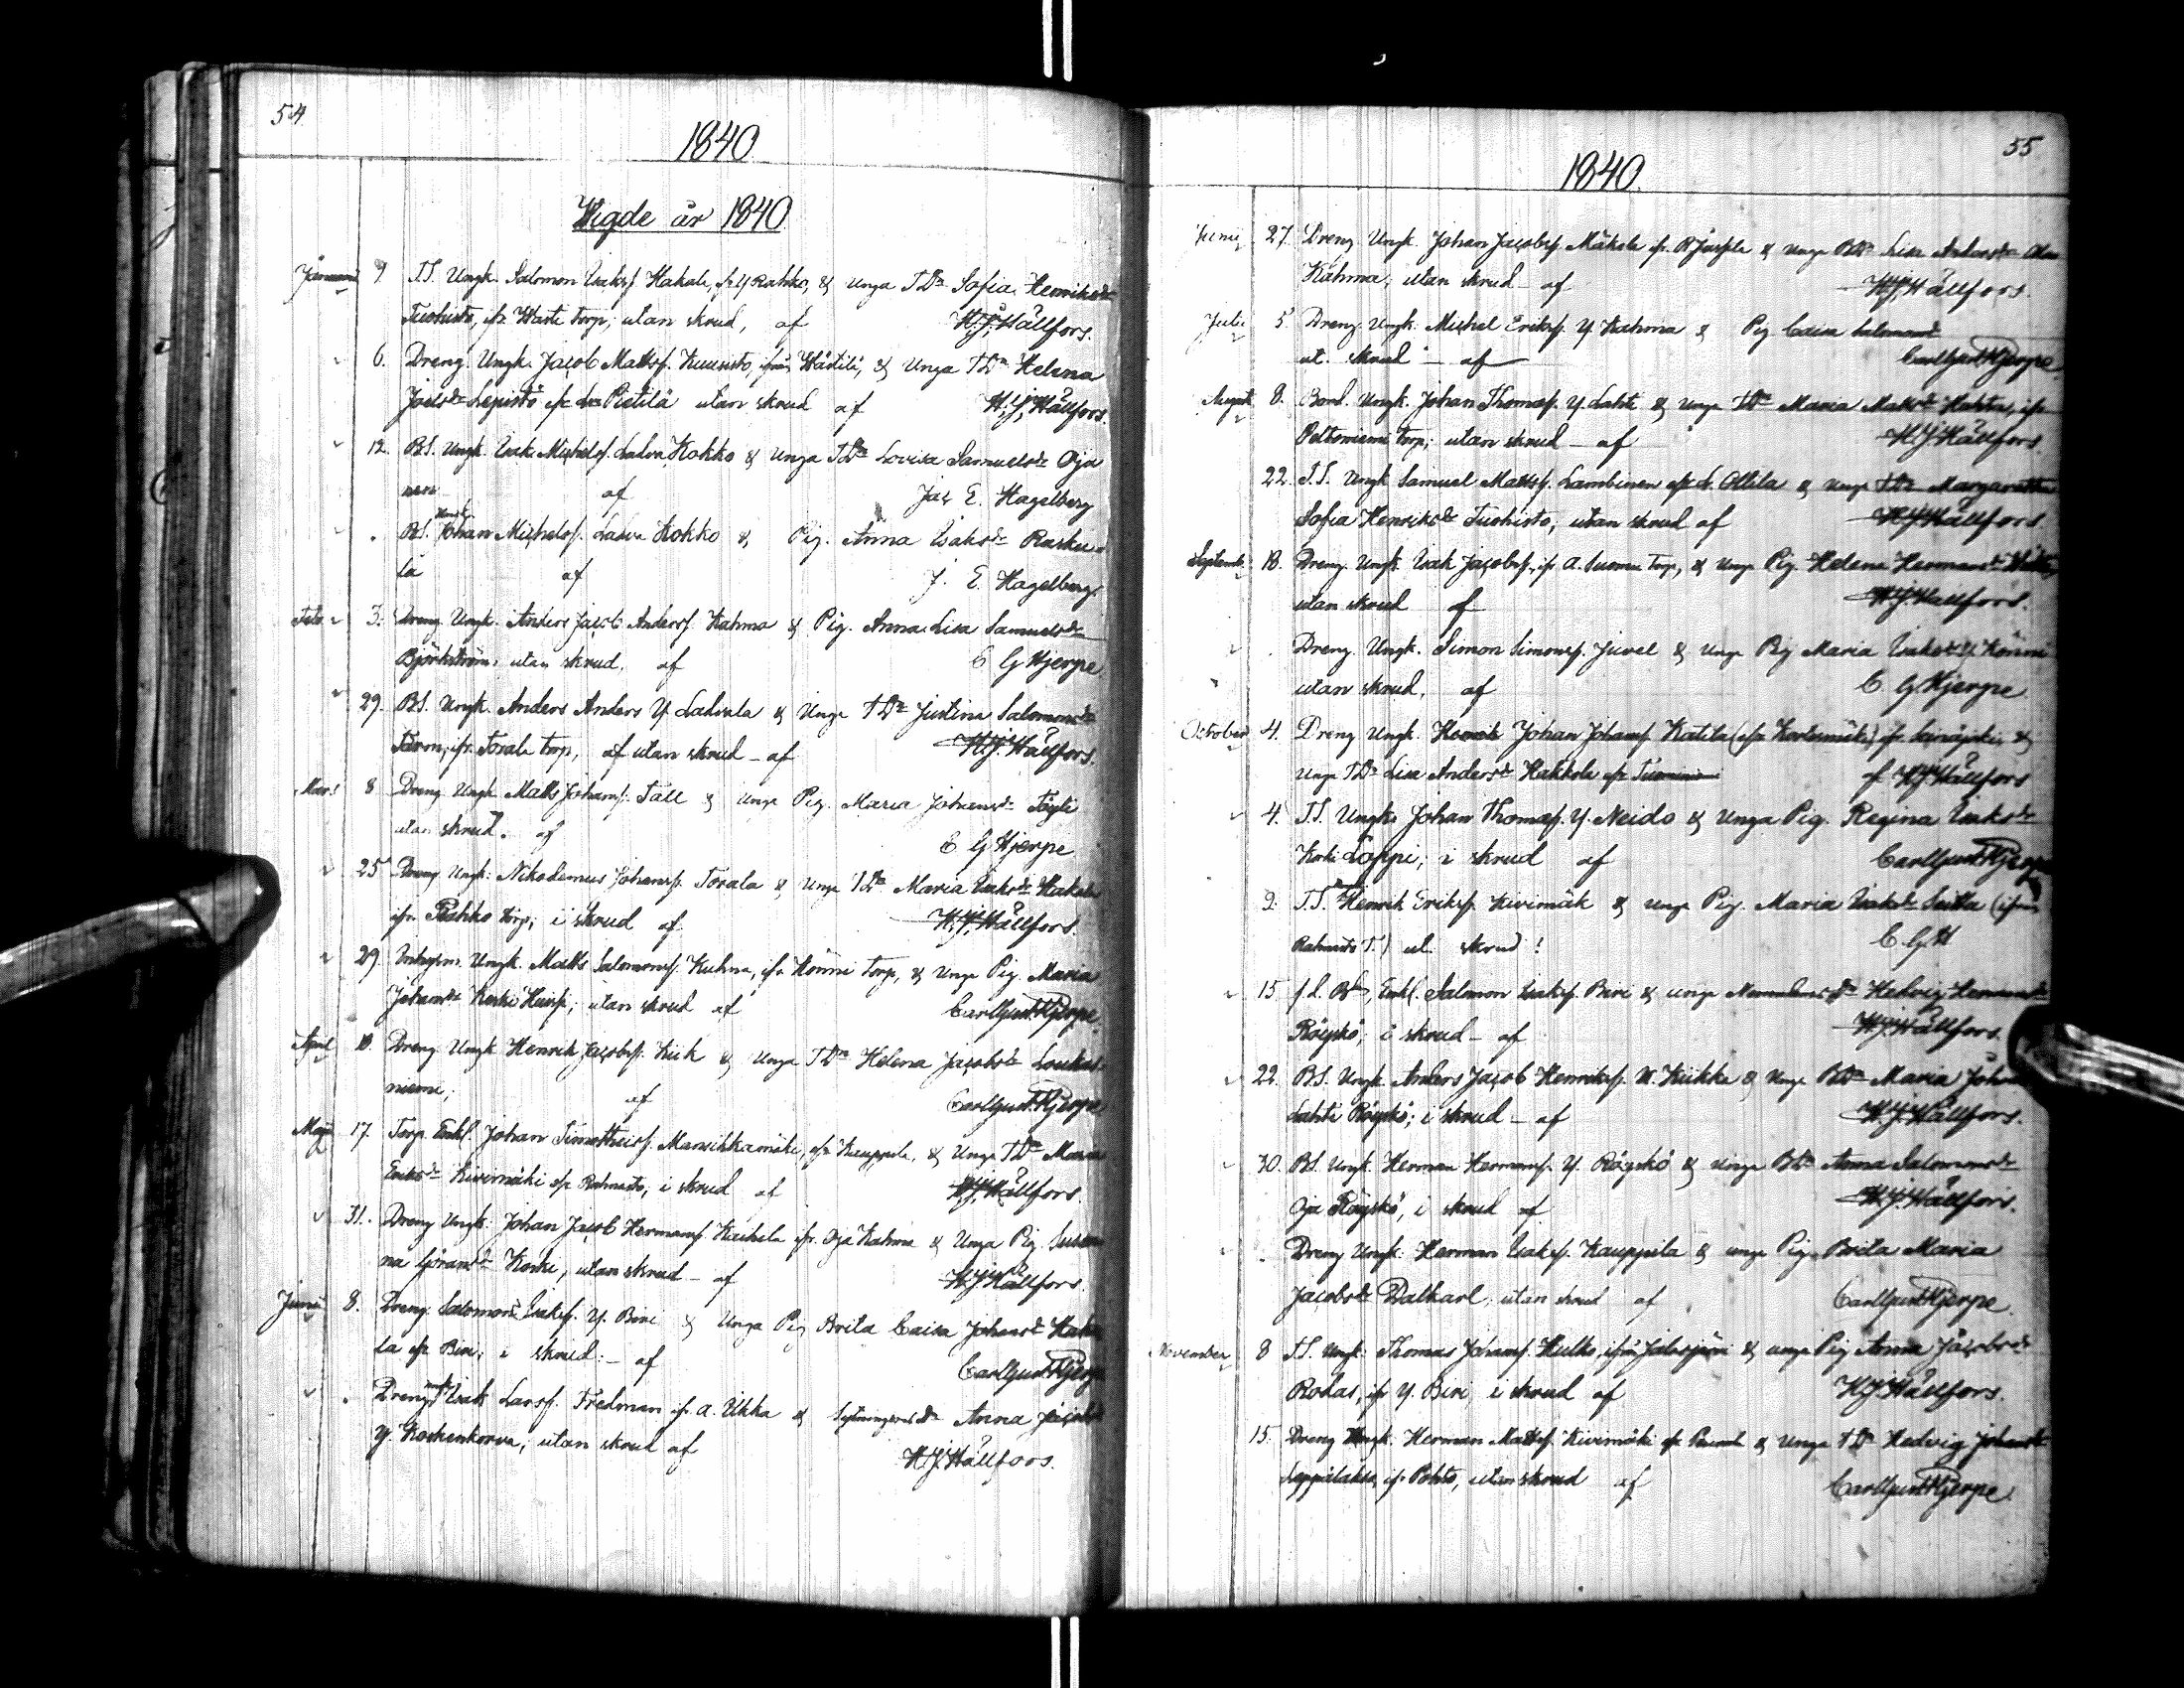 54
1840
Vigde år 1840.
Januari 9 T.S. Ungk. Salomon Isaksf. Hakala, ifr. Y Rahko, & Unga TDr Sofia Henriksdr
Tuohisto, ifr. torp, utan skrud, af H.J. Hällfors.
6. Dreng. Ungk. Jacob Mattsf. Kuusisto, ifrån & Unga TDr Helena
Joelsdr Lepistö ifr Pietilä utan skrud af H.J. Hällfors.
12. BS. Ungk. Isak Michelsf. Kokko & Unga TDr Lovisa Samuelsdr Oja
nen af Jac E. Hagelberg
. BS. Johan Michelsf. Kokko & Pig. Anna Isaksdr Rasku-
la af J. E. Hagelberg.
Feb. 3. Dreng. Ungk. Anders Jacob Andersf. Kahma & Pig. Anna Lisa Samuelsdr
Björkström, utan skrud, af C G Hjerpe
29. BS. Ungk. Anders Anders Y. Lahvala & Unga TDr Justina Salomonsdr
ifr. Torala torp, af utan skrud - af H.J. Hällfors.
Mars 8 Dreng Ungk. Matts Johansf. Täll & unga Pig. Maria Johansdr
utan skrud. af C G Hjerpe
25 Dreng Ungk: Nikodemus Johansf. Torala & Unga TDr Maria Isaksdr Hakala
ifr. torp; i skrud af H.J. Hällfors.
29. Ungk. Matts Salomonsf. Kuhna, ifr Könni Torp, & Unga Pig. Maria
Johansdr Koski utan skrud af Carl Gust. Hjerpe
April 10. Dreng Ungk Henrik Jacobsf. Kiik & Unga TDr Helena Jacobsdr Loukas-
niemi; af Carl Gust. Hjerpe
Maji 17. Torp. Enkl. Johan Timotheisf. Mansikkamäki, ifr Kauppila, & Unga TDr Maria
Eriksdr Kivimäki ifr Rahnasto, i skrud af H.J. Hällfors.
31. Dreng Ungk: Johan Jacob Hermansf. ifr. Oja Kahma & Unga Pig. Susan
na Göransdr Koski, utan skrud - af H.J. Hällfors.
Junii 8. Dreng. Salomon Isaksf. Y. Biri & Unga Pig Brita Caisa Johansdr
la ifr Biri; i skrud: - af Carl Gust. Hjerpe
. Dreng ungk Isak Larsf. Fredman ifr. A. Ukka & Anna Jacobsdr
Y. Koskenkorva; utan skrud af H.J. Hällfors.
55
1840.
Junij 27. Dreng. Ungk. Johan Jacobsf. Mäkelä ifr. & Unga BDr Lisa Andersdr
Kahma, utan skrud - af H.J. Hällfors.
Julii 5. Dreng. Ungk. Michel Eriksf. Y. Kahma & Pig Caisa Salomonsdr
ut. skrud - af Carl Gust. Hjerpe
August. 8. Bond. Ungk. Johan Thomasf. Y. Lahti & Unga TDr Maria Mattsdr ifr
Peltoniemi torp; utan skrud - af H.J. Hällfors
22. T.S. Ungk Samuel Mattsf. Lambinen ifr L. Ollila & Unga TDr Margaretha
Sofia Henriksdr Tuohisto, utan skrud af H.J. Hällfors.
Septemb. 18. Dreng. Ungk. Isak Jacobsf., ifr A. torp, & Unga Pig. Helena Hermansdr
utan skrud af H.J. Hällfors.
. Dreng. Ungk. Simon Simonsf. Juvel & Unga Pig Maria Isaksdr Y. Könni
utan skrud, af C G Hjerpe
October 4. Dreng Ungk. Johan Johansf. Katila ifr &
Unga TDr Lisa Andersdr Hakkola ifr af H.J. Hällfors
4. T.S. Ungk. Johan Thomasf. Y. Neido & Unga Pig. Regina Isaksdr
Koski Loppi; i skrud af Carl Gust Hjerpe
9. T.S. Henrik Eriksf. Kivimäk & Unga Pig. Maria Isaksdr (ifrån
T.) ut. skrud! C. G. H
15 Enkl. Salomon Isaksf. Biri & unga Hedvig Hermansdr
Röyskö; i skrud - af H.J. Hällfors.
22. BS. Ungk. Anders Jacob Henriksf. N. Kiikka & Unga BDr Maria Johan
Lahti Röyskö; i skrud - af H.J. Hällfors.
30. BS. Ungk. Herman Hermansf. Y. Röyskö & Unga BDr Anna Salomonsdr
Oja Röyskö, i skrud af H.J. Hällfors.
. Dreng Ungk: Herman Isaksf. Kauppila & unga Pig. Brita Maria
Jacobsdr Dalkarl, utan skrud af Carl Gust Hjerpe.
November 8 T.S. Ungk: Thomas Johansf. ifrån Jalasjärvi & unga Pig Anna Jacobsdr
Rodas, ifr Y. Biri, i skrud af H.J. Hällfors.
15. Dreng Ungk. Herman Mattsf. Kivimäki ifr & Unga TDr Hedvig Johansdr
ifr Pohto, utan skrud af Carl Gust Hjerpe.